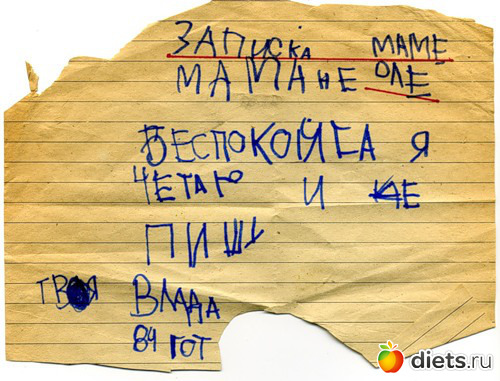 ЗАПИСКА МАМЕ
МАМА НЕ ОЛЕ
БЕСПОКОЙСА Я
ЧЕТАЮ И НЕ
ПИШУ
ТВОЯ ВЛАДА
84 ГОТ
diets.ru